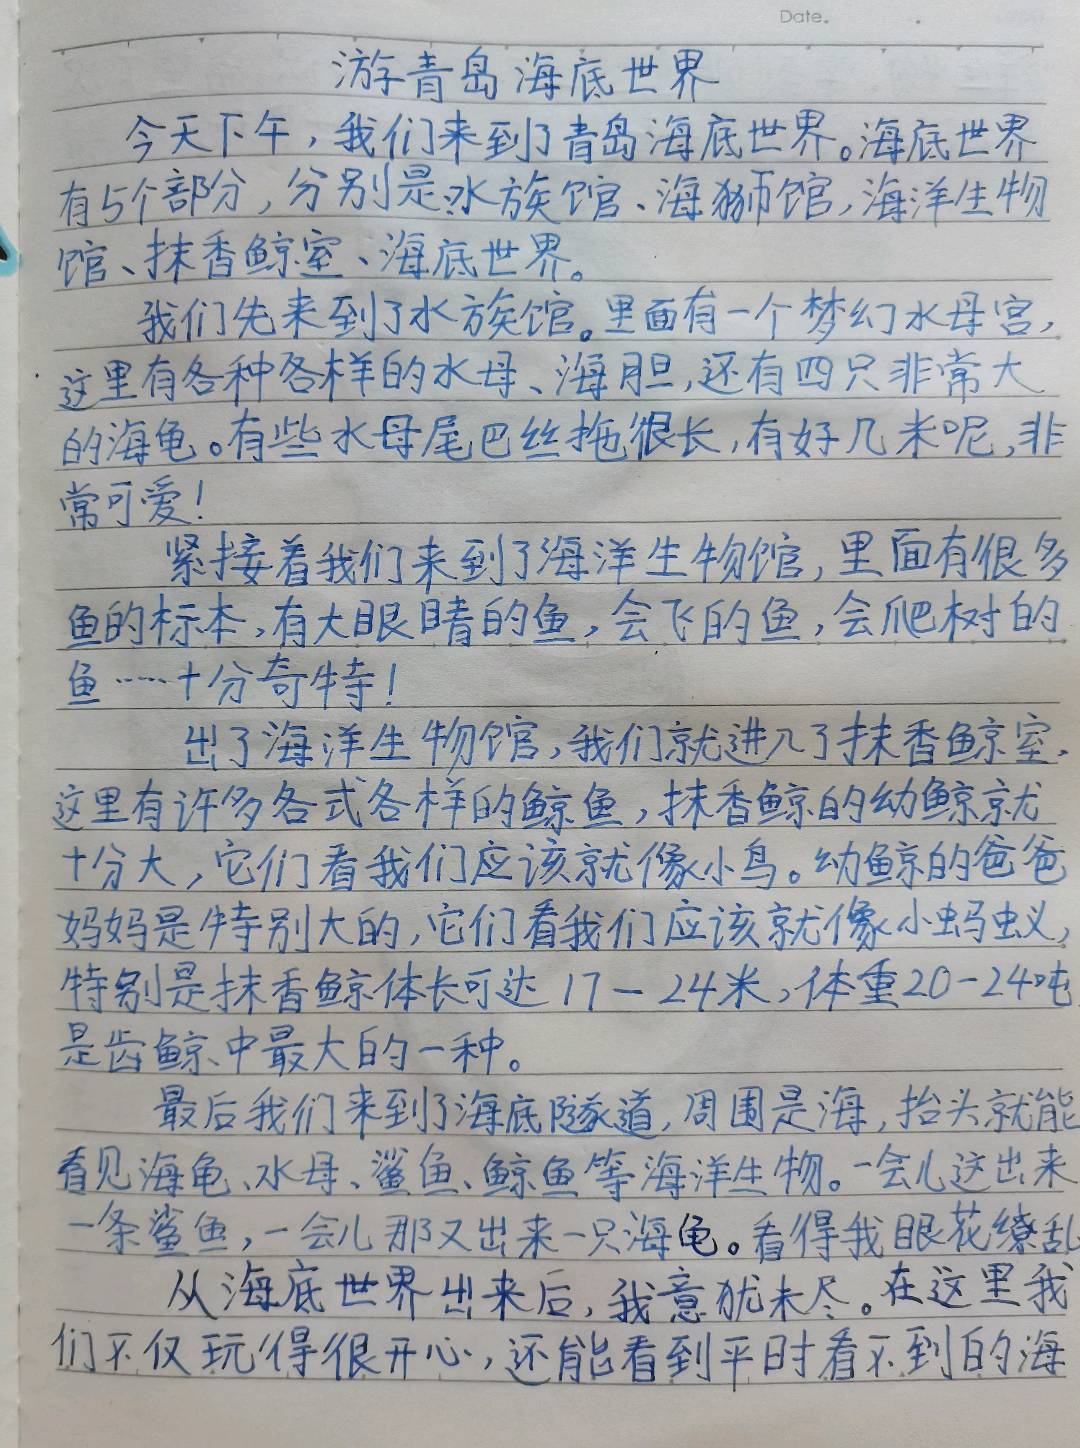 Date.
游青岛海底世界
今天下午，我们来到了青岛海底世界。海底世界
有5个部分，分别是水族馆、海狮馆，海洋生物
馆、抹香鲸室、海底世界。
我们先来到了水族馆。里面有一个梦幻水母宫，
这里有各种各样的水母、海胆，还有四只非常大
的海龟。有些水母尾巴丝拖很长，有好几米呢，非
常可爱！
紧接着我们来到了海洋生物馆，里面有很多
鱼的标本，有大眼睛的鱼，会飞的鱼，会爬树的
鱼……十分奇特！
出了海洋生物馆，我们就进入了抹香鲸室、
这里有许多各式各样的鲸鱼，抹香鲸的幼鲸就
十分大，它们看我们应该就像小鸟。幼鲸的爸爸
妈妈是特别大的，它们看我们应该就像小蚂蚁，
特别是抹香鲸体长可达17－24米，体重20－24吨
是齿鲸中最大的一种。
最后我们来到了海底隧道，周围是海，抬头就能
看见海龟、水母、鲨鱼、鲸鱼等海洋生物。一会儿这出来
一条鲨鱼，一会儿那又出来一只海龟。看得我眼花缭乱
从海底世界出来后，我意犹未尽。在这里我
们不仅玩得很开心，还能看到平时看不到的海